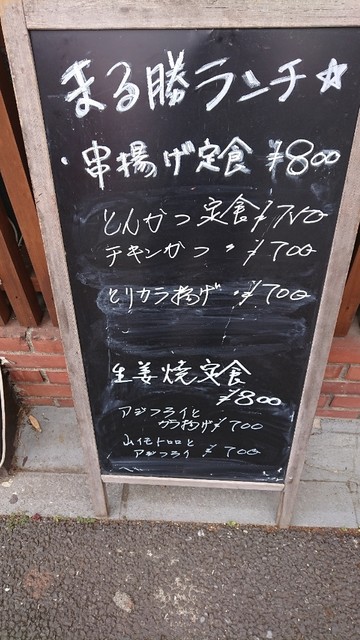 まる勝ランチ☆
・串揚げ定食 ¥800
とんかつ定食 ¥700
チキンかつ 〃 ¥700
とりカラ揚げ 〃 ¥700
生姜焼定食
¥800
アジフライと
カラ揚げ ¥700
山イモトロロと
アジフライ ¥700